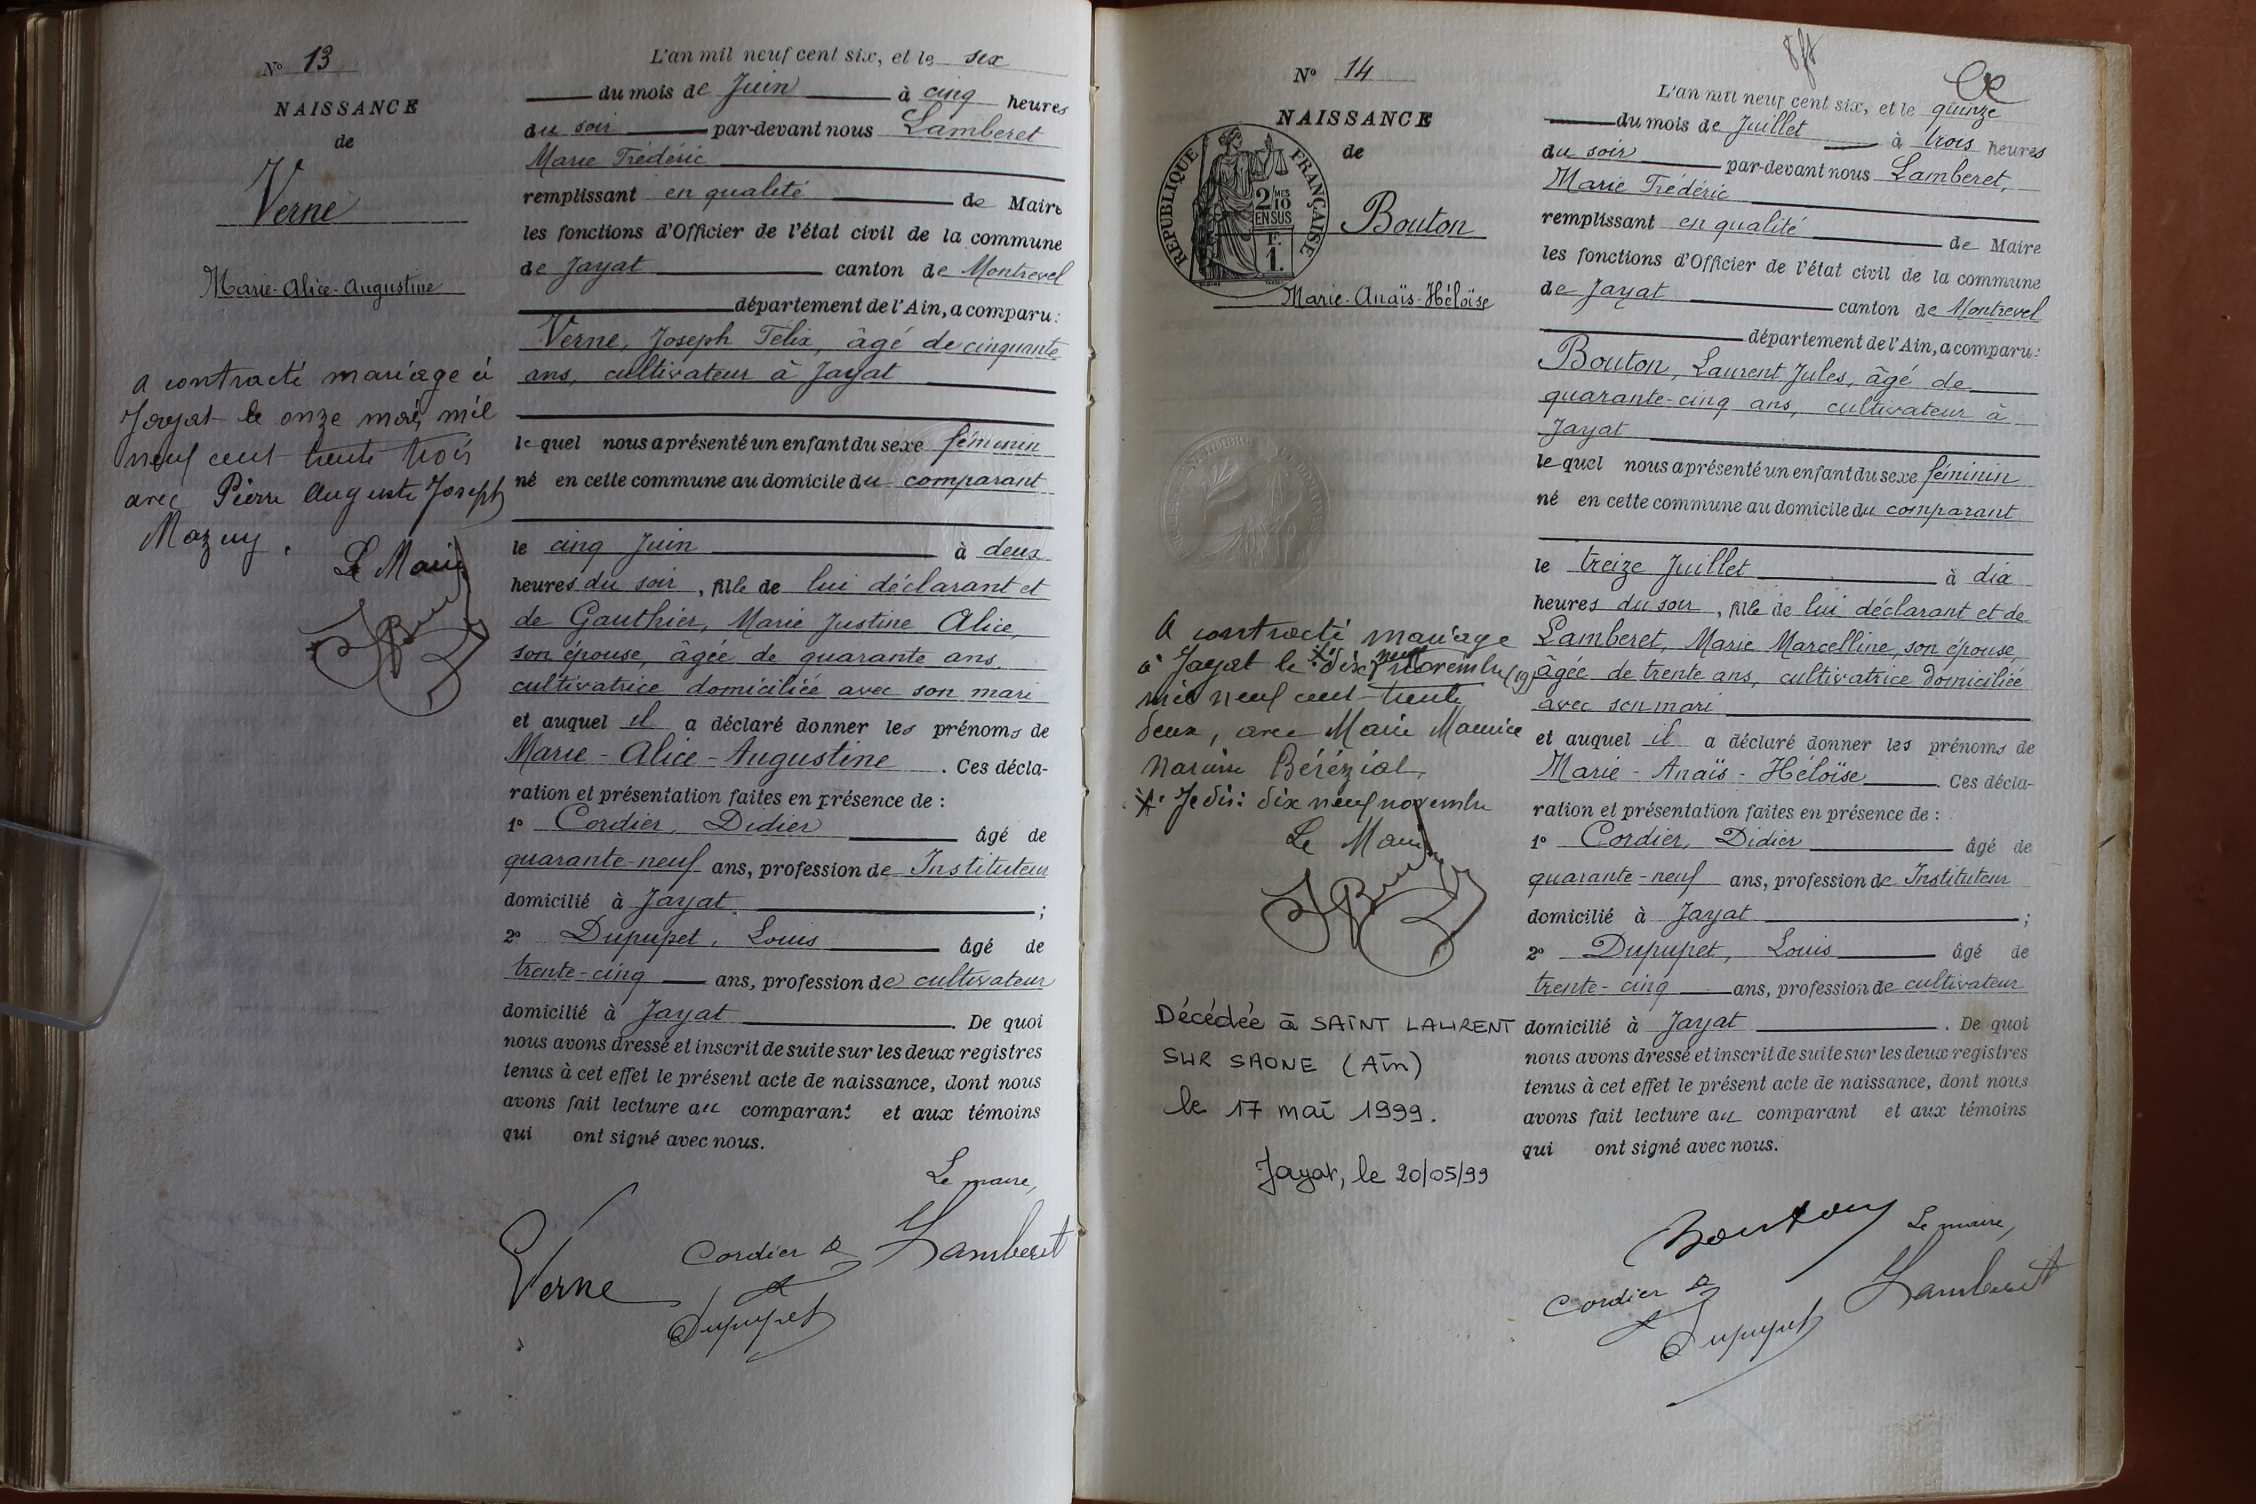 N° 13
NAISSANCE
de
Verne
Marie-Alice-Augustine
a contracté mariage à
Jayat le onze mai mil
neuf cent trente trois
avec Pierre Auguste Joseph
Mazuy.
Le Maire
L'an mil neuf cent six, et le six
du mois de Juin à cinq heures
du soir par-devant nous Lamberet
Marie Frédéric
remplissant en qualité de Maire
les fonctions d'Officier de l'état civil de la commune
de Jayat canton de Montrevel
département de l'Ain, a comparu :
Verne, Joseph Félix, âgé de cinquante
ans, cultivateur à Jayat
lequel nous a présenté un enfant du sexe féminin
né en cette commune au domicile du comparant
le cinq Juin à deux
heures du soir, fille de lui déclarant et
de Gauthier, Marie Justine Alice,
son épouse, âgée de quarante ans,
cultivatrice domiciliée avec son mari
et auquel il a déclaré donner les prénoms de
Marie-Alice-Augustine. Ces décla-
ration et présentation faites en présence de :
1° Cordier, Didier âgé de
quarante-neuf ans, profession de Instituteur
domicilié à Jayat ;
2° Dupupet, Louis âgé de
trente-cinq ans, profession de cultivateur
domicilié à Jayat. De quoi
nous avons dressé et inscrit de suite sur les deux registres
tenus à cet effet le présent acte de naissance, dont nous
avons fait lecture au comparant et aux témoins
qui ont signé avec nous.
Le maire,
Verne Cordier D Lamberet
Dupupet
N° 14
NAISSANCE
de
REPUBLIQUE FRANÇAISE
2/10 MES
EN SUS
F.
1.
Bouton
Marie-Anaïs-Héloïse
A contracté mariage
à Jayat le dix neuf novembre (19)
mil neuf cent trente
deux, avec Marie Maurice
Bérézial.
Je dis: dix neuf novembre
Le Maire
Décédée à SAINT LAURENT
SUR SAONE (Ain)
le 17 mai 1999.
Jayat, le 20/05/99
L'an mil neuf cent six, et le quinze
du mois de Juillet à trois heures
du soir par-devant nous Lamberet,
Marie Frédéric
remplissant en qualité de Maire
les fonctions d'Officier de l'état civil de la commune
de Jayat canton de Montrevel
département de l'Ain, a comparu :
Bouton, Laurent Jules, âgé de
quarante-cinq ans, cultivateur à
Jayat
lequel nous a présenté un enfant du sexe féminin
né en cette commune au domicile du comparant
le treize Juillet à dix
heures du soir, fille de lui déclarant et de
Lamberet, Marie Marcelline, son épouse,
âgée de trente ans, cultivatrice domiciliée
avec son mari
et auquel il a déclaré donner les prénoms de
Marie-Anaïs-Héloïse. Ces décla-
ration et présentation faites en présence de :
1° Cordier, Didier âgé de
quarante-neuf ans, profession de Instituteur
domicilié à Jayat ;
2° Dupupet, Louis âgé de
trente-cinq ans, profession de cultivateur
domicilié à Jayat. De quoi
nous avons dressé et inscrit de suite sur les deux registres
tenus à cet effet le présent acte de naissance, dont nous
avons fait lecture au comparant et aux témoins
qui ont signé avec nous.
Bouton Le maire,
Cordier D Lamberet
Dupupet